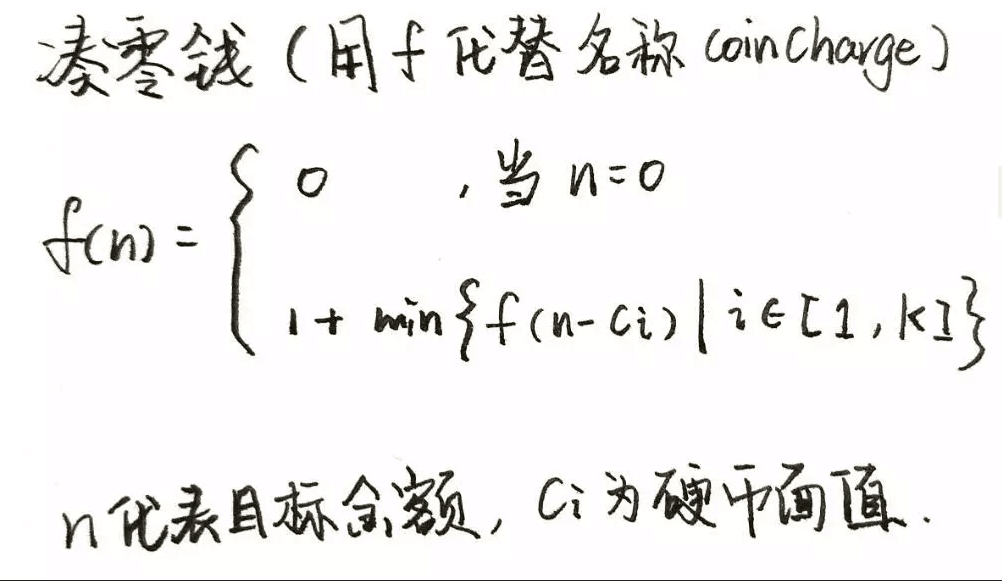 凑零钱（用f代替名称coinCharge）
f(n) = { 0 , 当 n=0
1 + min{f(n-ci) | i∈[1,k]}
n代表目标金额, Ci为硬币面值.